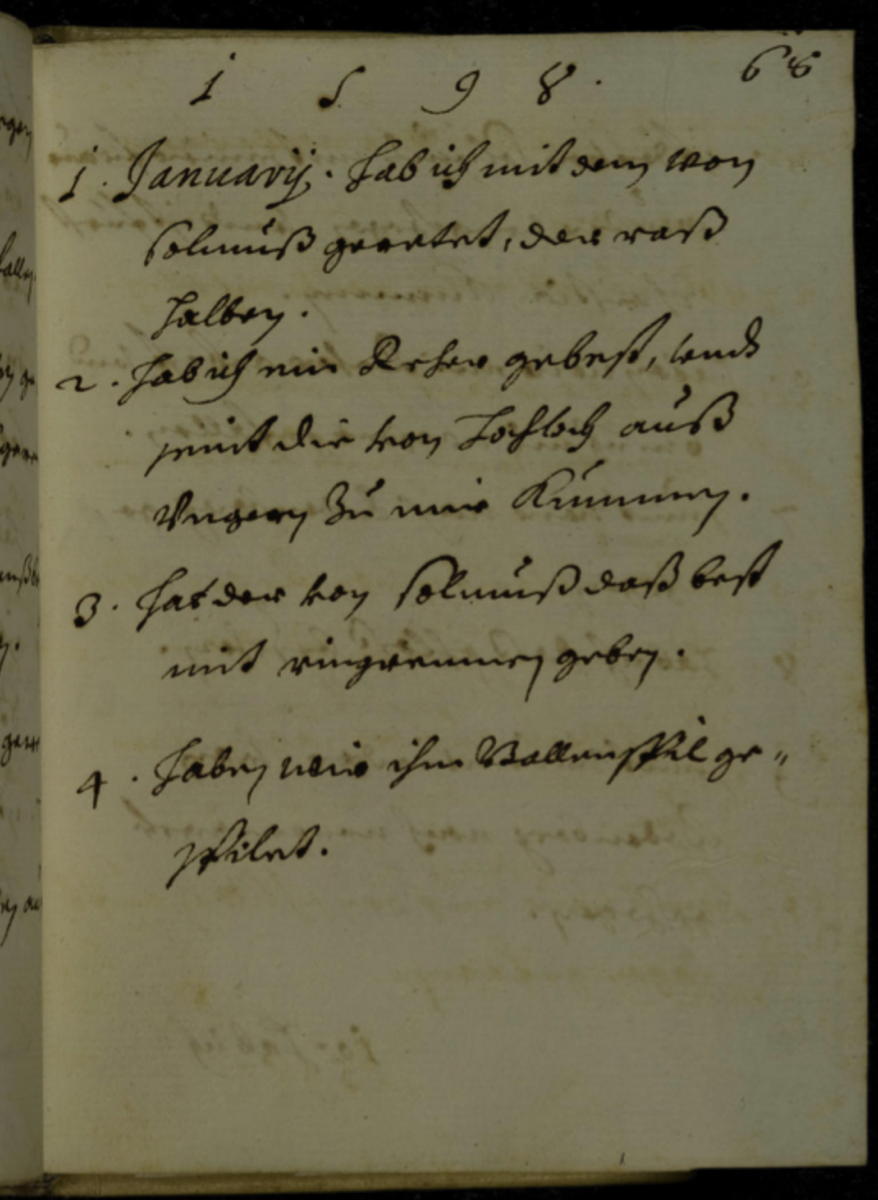 1 5 9 8. 68
1. Januarij. Hab ich mit dem von
Solmuß geretet, der raß
halben.
2. Hab ich ein Reher gebest, vnd
seint die von Hohloch auß
Vngern zu mir kummen.
3. Hat der von Solmuß daß best
mit ringrennen geben.
4. Haben wir ihm Ballenspil ge„
spilet.